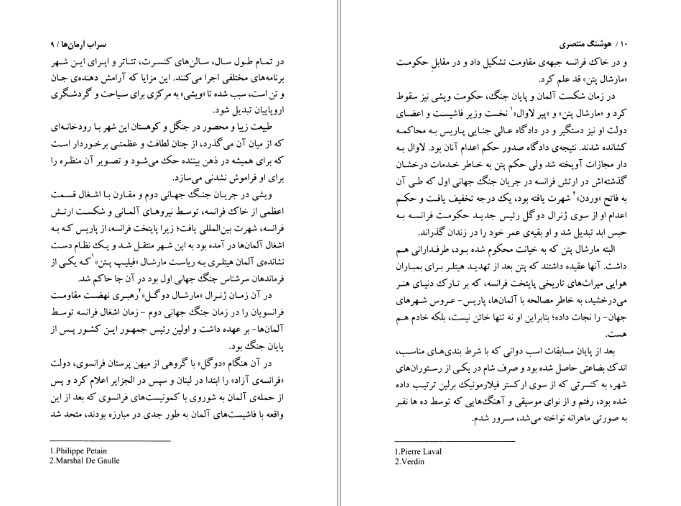 سراب آرمان‌ها / ۹
در تمام طول سال، سالن‌های کنسرت، تئاتر و اپرای این شهر
برنامه‌های مختلفی اجرا می‌کنند. این مزایا که آرامش دهنده‌ی جان
و تن است، سبب شده تا «ویشی» به مرکزی برای سیاحت و گردشگری
اروپاییان تبدیل شود.
طبیعت زیبا و محصور در جنگل و کوهستان این شهر با رودخانه‌ای
که از میان آن می‌گذرد، از چنان لطافت و عظمتی برخوردار است
که برای همیشه در ذهن بیننده حک می‌شود و تصویر آن منظره را
برای او فراموش نشدنی می‌سازد.
ویشی در جریان جنگ جهانی دوم و مقارن با اشغال قسمت
اعظمی از خاک فرانسه، توسط نیروهای آلمانی و شکست ارتش
فرانسه، شهرت بین‌المللی یافت؛ زیرا پایتخت فرانسه، از پاریس که به
اشغال آلمان‌ها در آمده بود به این شهر منتقل شد و یک نظام دست
نشانده‌ی آلمان هیتلری به ریاست مارشال «فیلیپ پتن»۱که یکی از
فرماندهان سرشناس جنگ جهانی اول بود در آن جا حاکم شد.
در آن زمان ژنرال «مارشال دوگل»۲رهبری نهضت مقاومت
فرانسویان را در زمان جنگ جهانی دوم - زمان اشغال فرانسه توسط
آلمان‌ها- بر عهده داشت و اولین رئیس جمهور این کشور پس از
پایان جنگ بود.
در آن هنگام «دوگل» با گروهی از میهن پرستان فرانسوی، دولت
«فرانسه‌ی آزاد» را ابتدا در لبنان و سپس در الجزایر اعلام کرد و پس
از حمله‌ی آلمان به شوروی با کمونیست‌های فرانسوی که بعد از این
واقعه با فاشیست‌های آلمان به طور جدی در مبارزه بودند، متحد شد
1.Philippe Petain
2.Marshal De Gaulle
۱۰ / هوشنگ منتصری
و در خاک فرانسه جبهه‌ی مقاومت تشکیل داد و در مقابل حکومت
«مارشال پتن» قد علم کرد.
در زمان شکست آلمان و پایان جنگ، حکومت ویشی نیز سقوط
کرد و «مارشال پتن» و «پیر لاوال»۱ نخست وزیر فاشیست و اعضای
دولت او نیز دستگیر و در دادگاه عالی جنایی پاریس به محاکمه
کشانده شدند. نتیجه‌ی دادگاه صدور حکم اعدام آنان بود. لاوال به
دار مجازات آویخته شد ولی حکم پتن به خاطر خدمات درخشان
گذشته‌اش در ارتش فرانسه در جریان جنگ جهانی اول که طی آن
به فاتح «وردن»۲ شهرت یافته بود، یک درجه تخفیف یافت و حکم
اعدام او از سوی ژنرال دوگل رئیس جدید حکومت فرانسه به
حبس ابد تبدیل شد و او بقیه‌ی عمر خود را در زندان گذراند.
البته مارشال پتن که به خیانت محکوم شده بود، طرفدارانی هم
داشت. آنها عقیده داشتند که پتن بعد از تهدید هیتلر برای بمباران
هوایی میراث‌های تاریخی پایتخت فرانسه، که بر تارک دنیای هنر
می‌درخشید، به خاطر مصالحه با آلمان‌ها، پاریس- عروس شهرهای
جهان- را نجات داده؛ بنابراین او نه تنها خائن نیست، بلکه خادم هم
هست.
بعد از پایان مسابقات اسب دوانی که با شرط بندی‌های مناسب،
اندک بضاعتی حاصل شده بود و صرف شام در یکی از رستوران‌های
شهر، به کنسرتی که از سوی ارکستر فیلارمونیک برلین ترتیب داده
شده بود، رفتم و از نوای موسیقی و آهنگ‌هایی که توسط ده ها نفر
به صورتی ماهرانه نواخته می‌شد، مسرور شدم.
1.Pierre Laval
2.Verdin